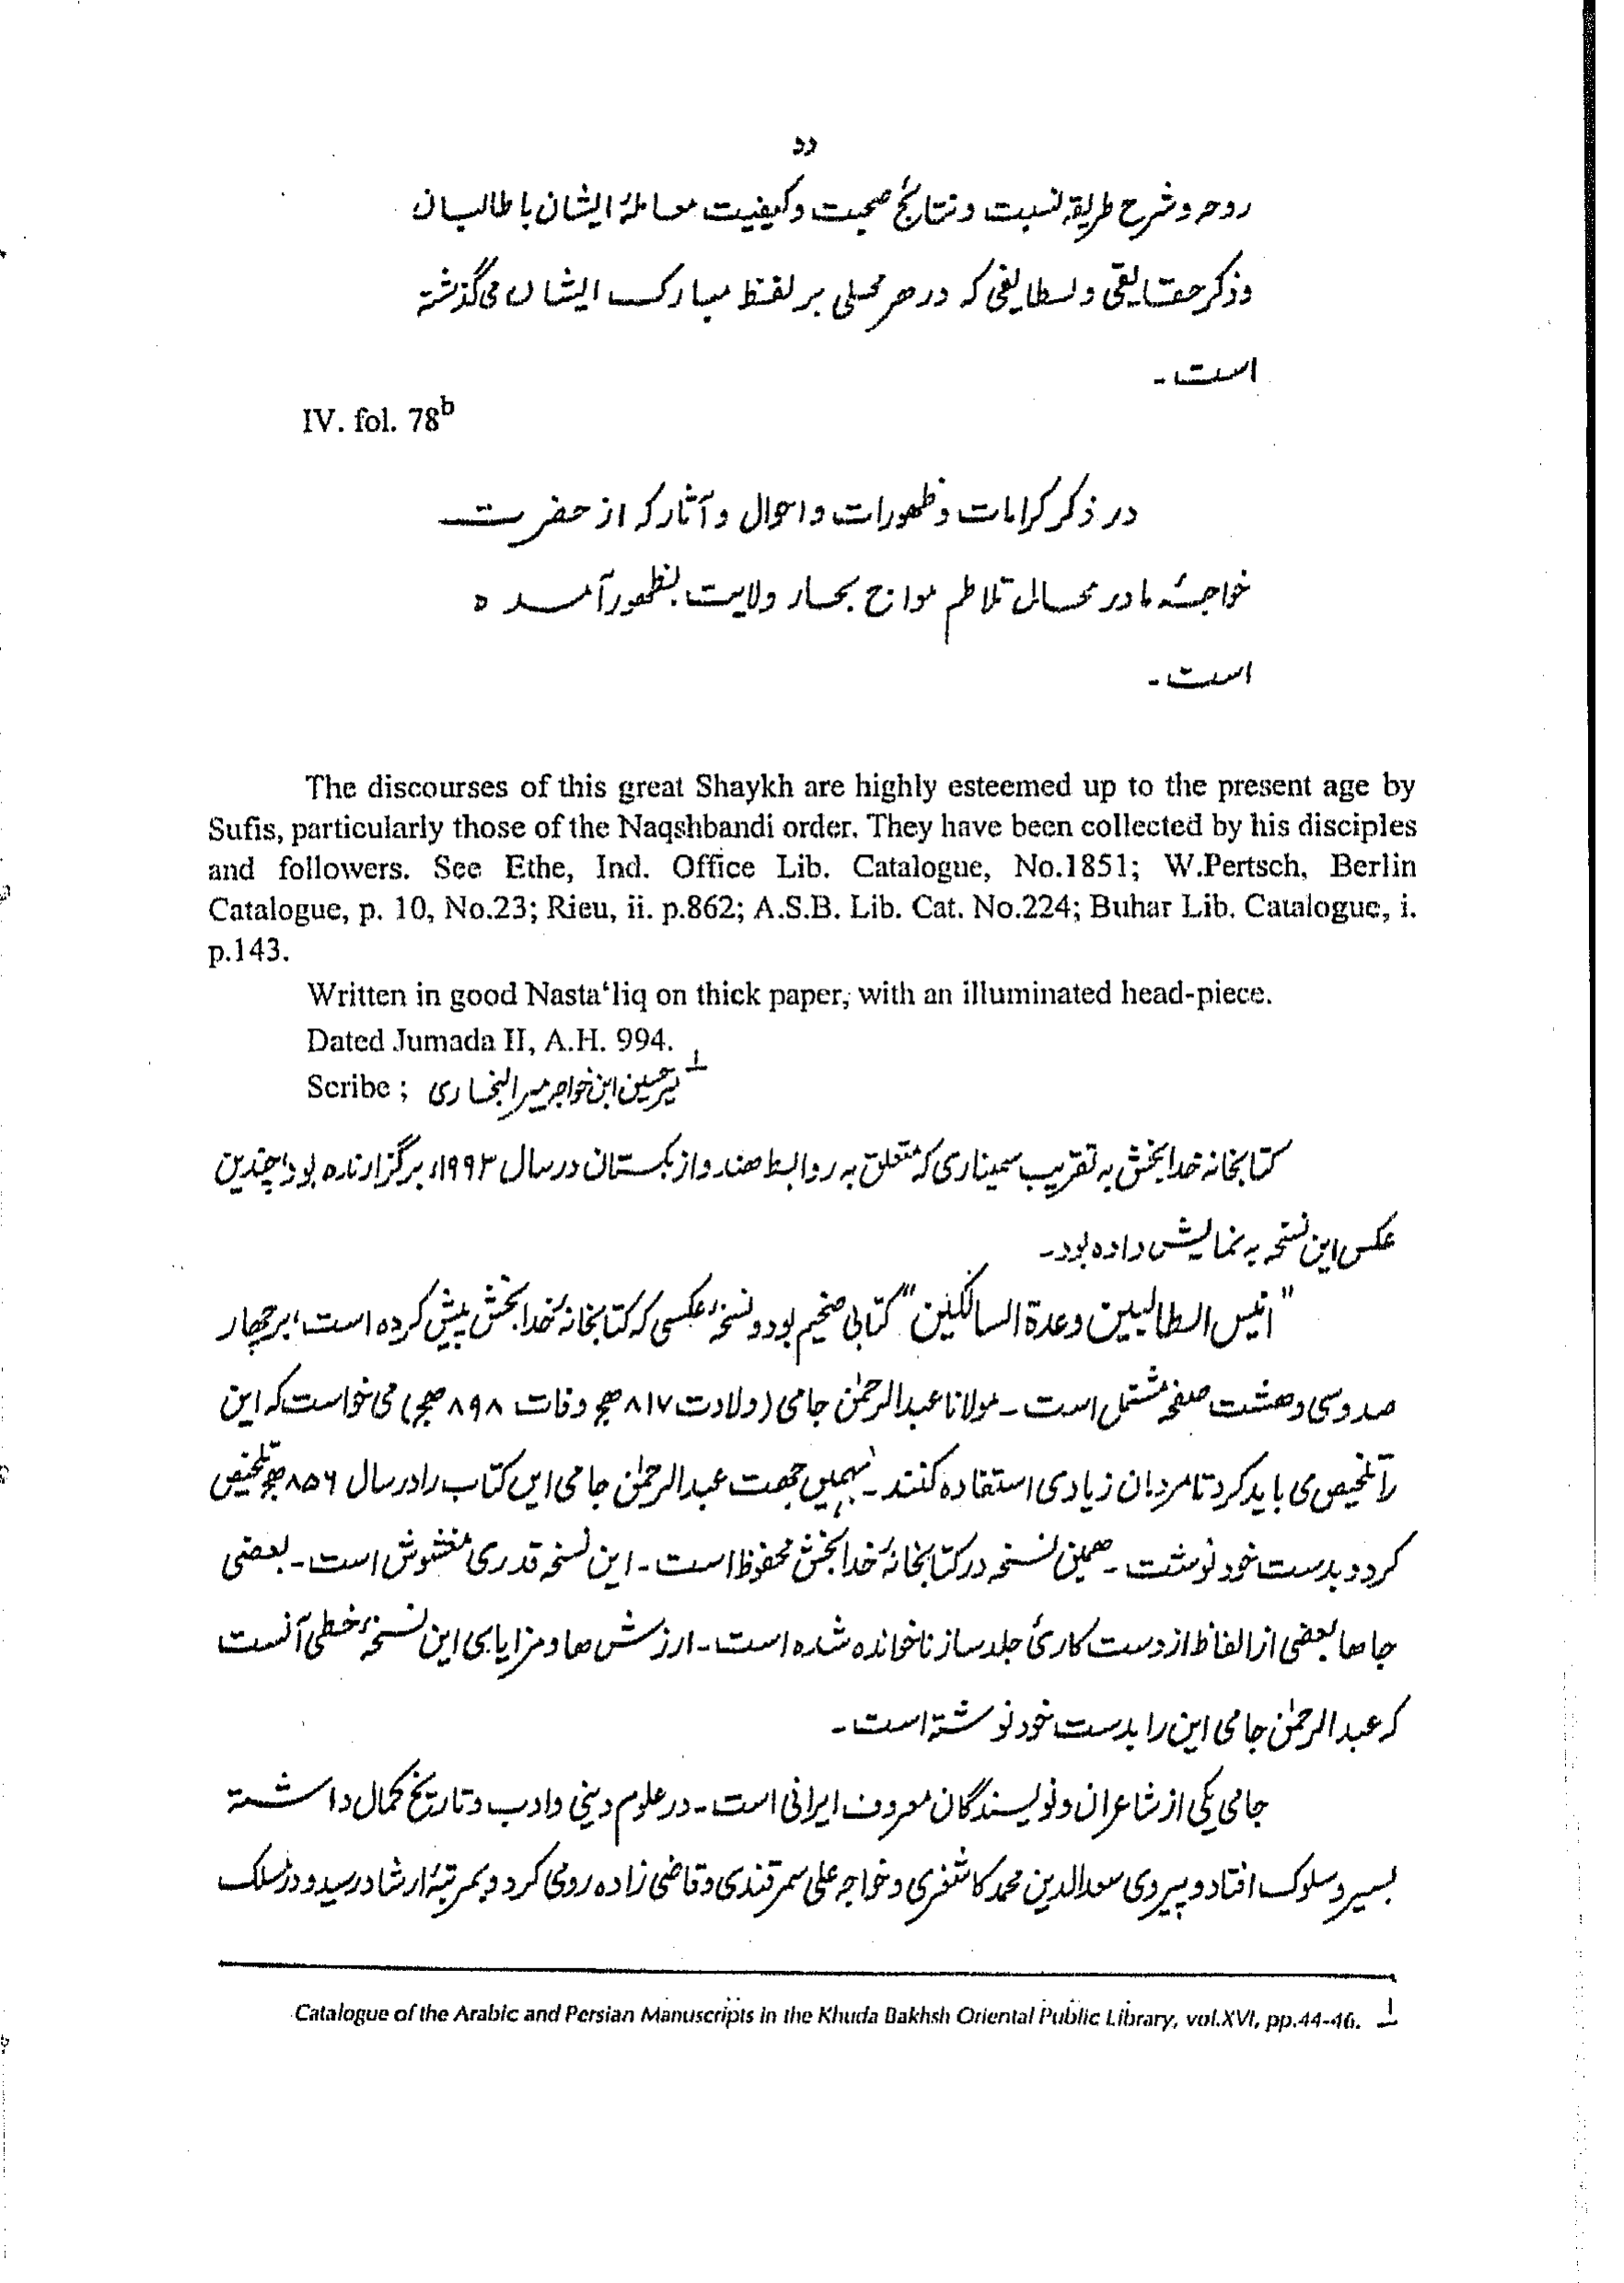 دد
روحہ وشرح طریقہ نسبت و نتائج صحبت و کیفیت معاملۂ ایشان با طالبان
وذکر حقایقی و لطایفی کہ در ھر محلی بر لفظ مبارک ایشان می گذشتہ
است۔
IV. fol. 78ᵇ
در ذکر کرامات و ظھورات و احوال و آثار کہ از حضرت
خواجۂ ما در محال تلاطم مواج بحار ولایت بظھور آمدہ
است۔
The discourses of this great Shaykh are highly esteemed up to the present age by
Sufis, particularly those of the Naqshbandi order. They have been collected by his disciples
and followers. See Ethe, Ind. Office Lib. Catalogue, No.1851; W.Pertsch, Berlin
Catalogue, p. 10, No.23; Rieu, ii. p.862; A.S.B. Lib. Cat. No.224; Buhar Lib. Catalogue, i.
p.143.
Written in good Nasta‘liq on thick paper, with an illuminated head-piece.
Dated Jumada II, A.H. 994.
Scribe ; میر حسین ابن خواجہ میر البخاری ⊥
کتابخانہ خدابخش بہ تقریب سمیناری کہ متعلق بہ روابط ھند و ازبکستان در سال ۱۹۹۳ء برگزارندہ بود، چندین
عکس این نسخہ بہ نمایش دادہ بود۔
"انیس الطالبین وعدة السالکین" کتابی ضخیم بود و نسخۂ عکسی کہ کتابخانۂ خدابخش پیش کردہ است، بر چھار
صد و سی و ھشت صفحہ مشتمل است۔ مولانا عبدالرحمٰن جامی (ولادت ۸۱۷ھج وفات ۸۹۸ ھج) می خواست کہ این
را تلخیص ی باید کرد تا مردان زیادی استفادہ کنند۔ بہمیں جھت عبدالرحمٰن جامی ایں کتاب را در سال ۸۵۶ھج تلخیص
کرد و بدست خود نوشت۔ ھمین نسخہ در کتابخانۂ خدابخش محفوظ است۔ این نسخہ قدری مغشوش است۔ بعضی
جاھا بعضی از الفاظ از دست کاریٔ جلد ساز ناخواندہ شدہ است۔ ارزش ھا و مزایا بی این نسخۂ خطی آنست
کہ عبدالرحمٰن جامی این را بدست خود نوشتہ است۔
جامی یکی از شاعران و نویسندگان معروف ایرانی است۔ در علوم دینی و ادب و تاریخ کمال داشتہ
بسیر و سلوک افتاد و پیروی سعدالدین محمد کاشغری و خواجہ علی سمرقندی و قاضی زادہ رومی کرد و بمرتبۂ ارشاد رسید و در سلک
Catalogue of the Arabic and Persian Manuscripts in the Khuda Bakhsh Oriental Public Library, vol.XVI, pp.44-46. ⊥